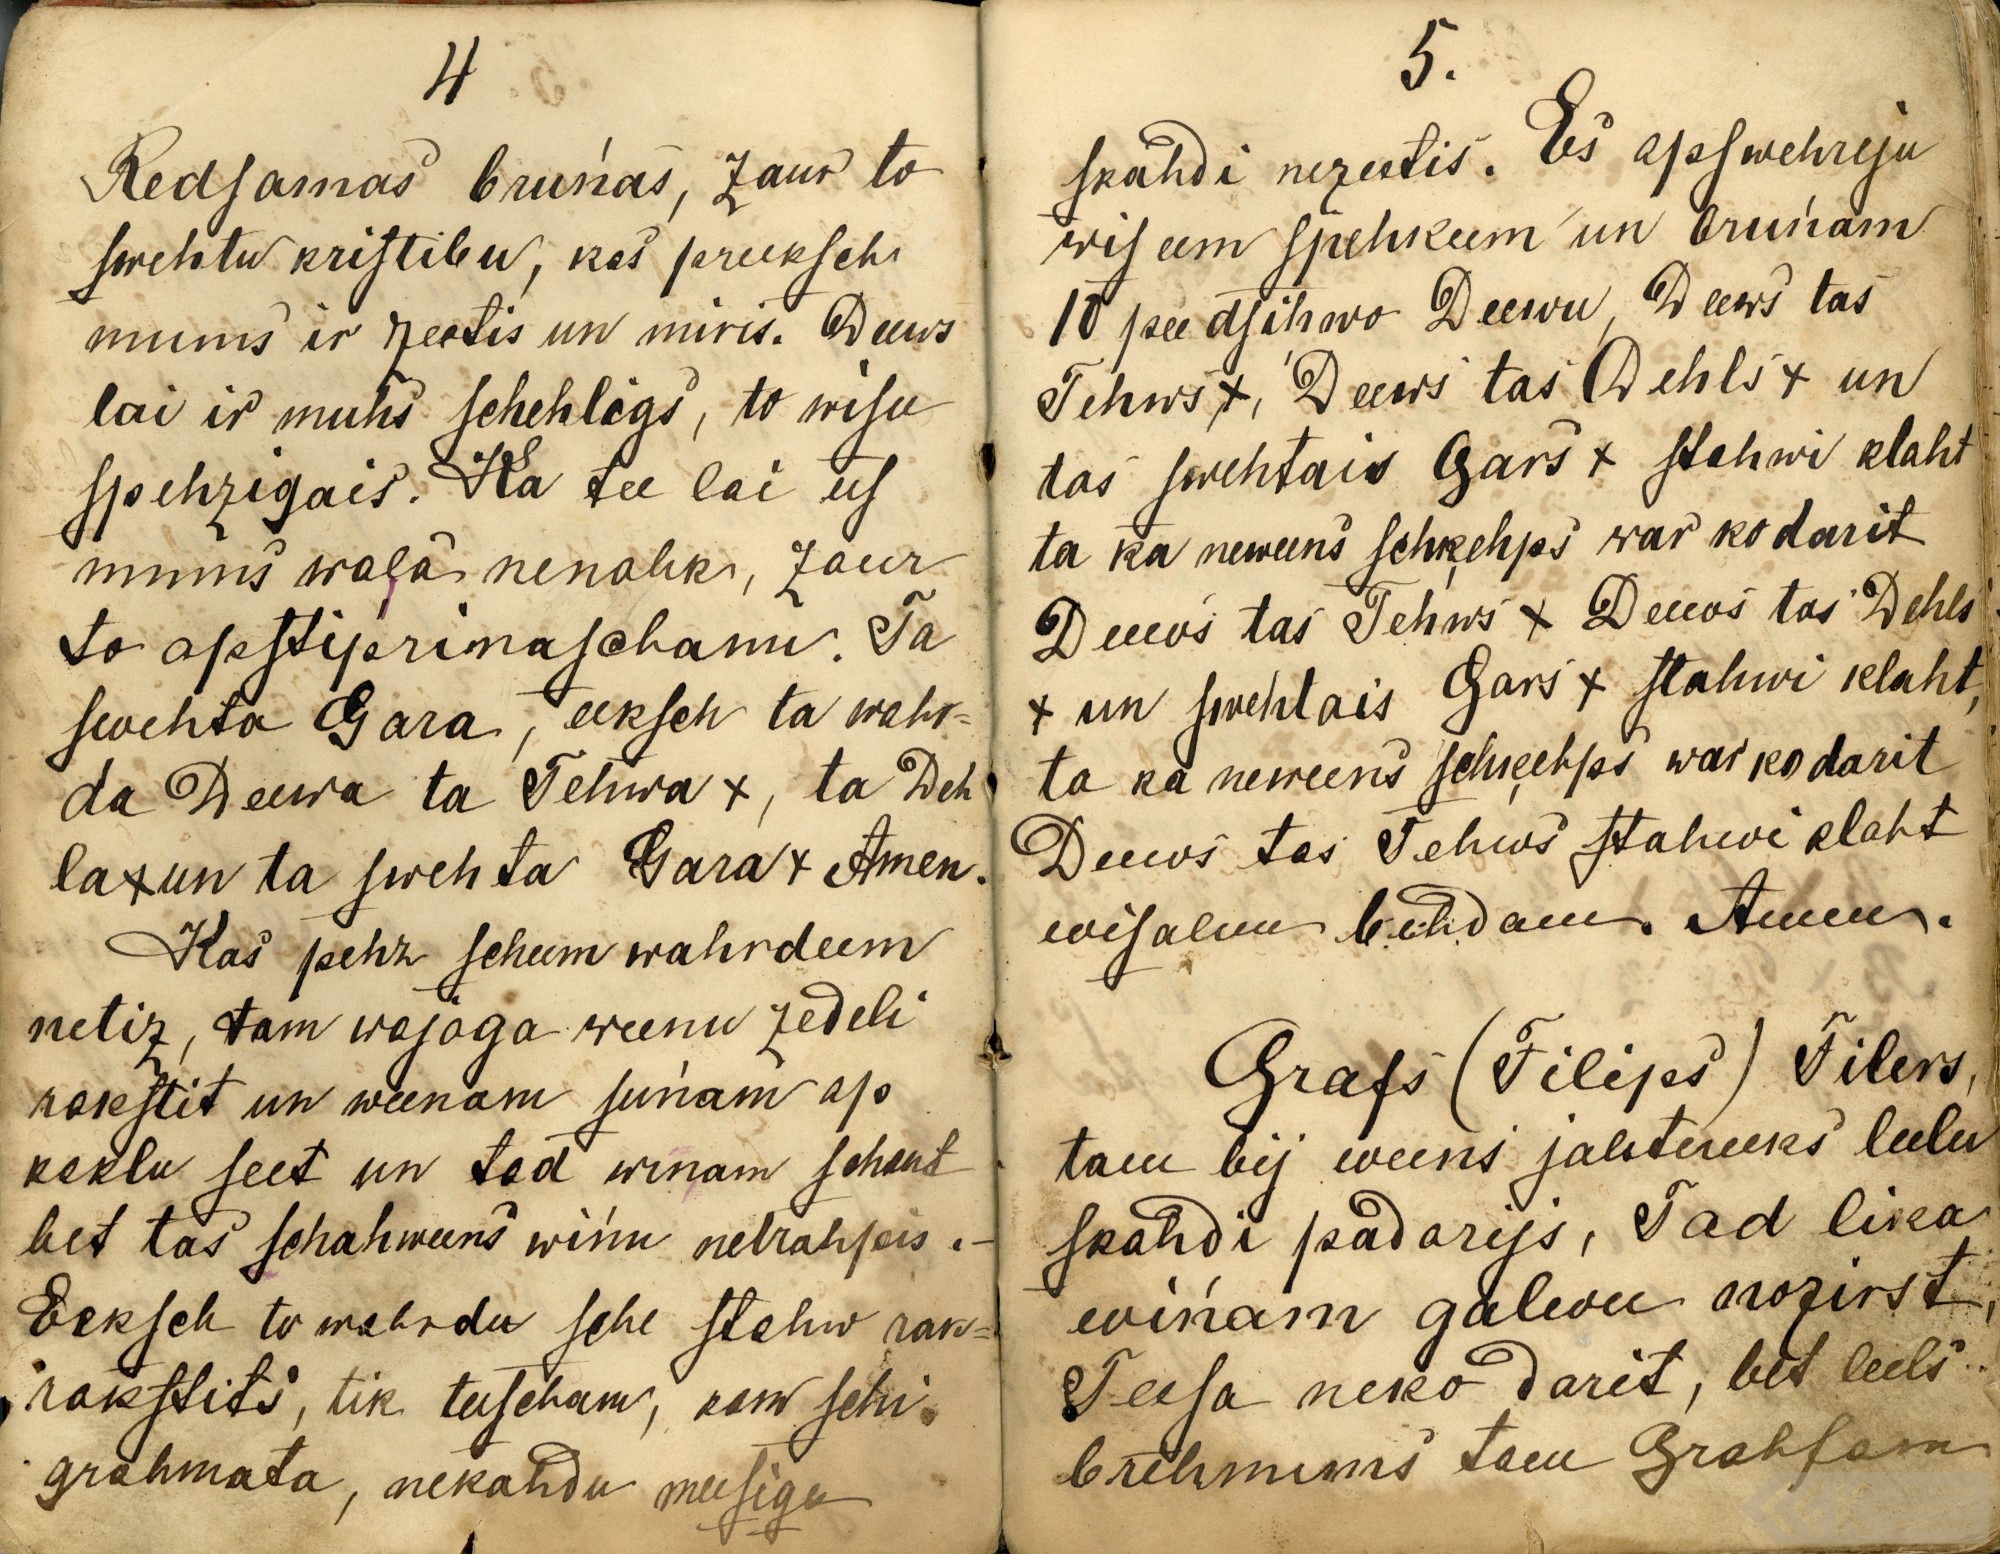 4
Redsamas bruńas, zaur to
swehtu kristibu, kas preeksch
mums ir zeetis un miris. Deews
lai ir muhs schehligs, to wisu
spehzigais. Ka tee lai us
mums waļa nenahk, zaur
to apstiprinaschanu. Ta
swehta Gara, eeksch ta wahr=
da Deewa ta Tehwa +, ta Deh
la + un ta swehta Gara + Amen.
Kas pehz scheem wahrdeem
netiz, tam wajaga weenu zedeli
rakstit un weenam suńam ap
kaklu seet un tad winam schaut
bet tas schahweens wińu netrahpis. –
Eeksch to wahrdu sche stahw rak=
rakstits, tik teescham, kam schi
grahmata, nekahdu meesigu
5.
skahdi nezeetis. Es apswehreju
wiseem spehkeem un bruńam
10 pee dsihwo Deewu, Deews tas
Tehws +, Deews tas Dehls + un
tas swehtais Gars + stahwi klaht
ta ka neweens schķehps war ko darit
Deews tas Tehws + Deews tas Dehls
+ un swehtais Gars + stahwi klaht,
ta ka neweens schķehps war ko darit
Deews tas Tehws stahwi klaht
wisaseem behdam. Amen.
Grafs (Filips) Filers,
tam bij weens jahtneeks leelu
skahdi padarijs, Tad lika
wińam galwu nozirst,
Teesa neko darit, bet leels
brehmums tam Grahfam